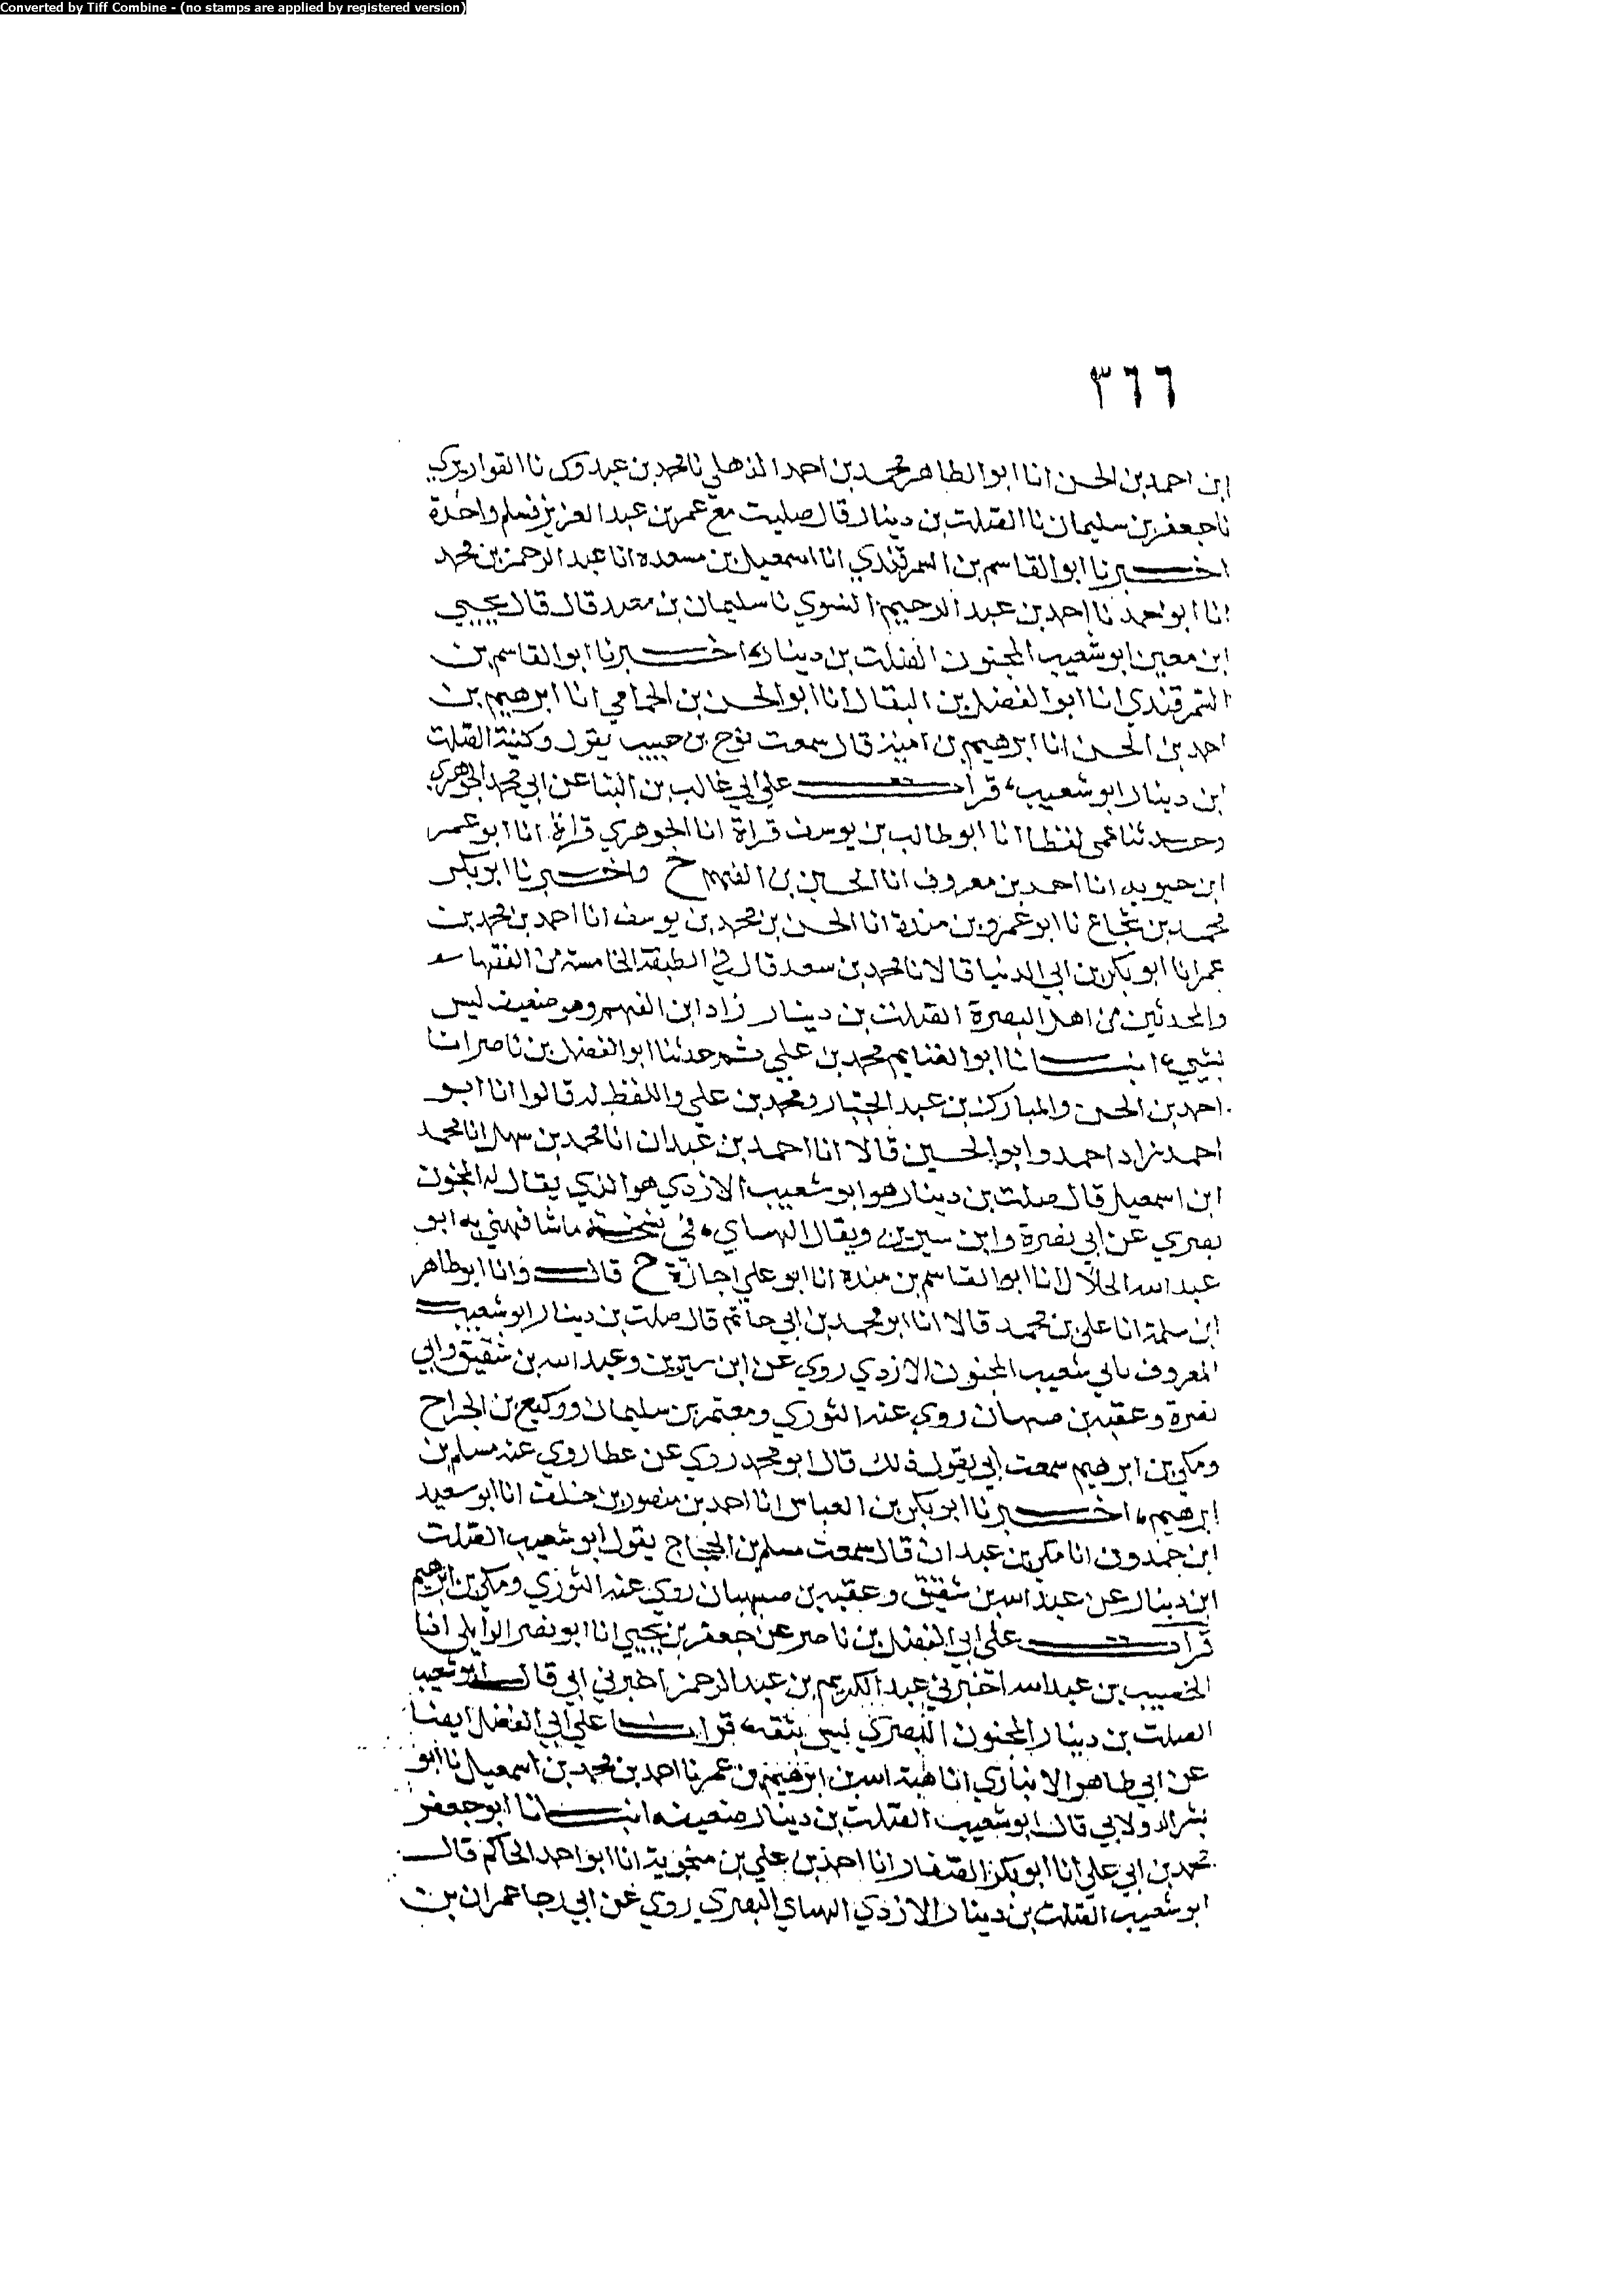 Converted by Tiff Combine - (no stamps are applied by registered version)
٣٦٦
ابن احمد بن الحسن انا ابو الطاهر محمد بن احمد الذهلي نا محمد بن عبدوس نا القواريري
نا جعفر بن سليمان نا الصلت بن دينار قال صليت مع عمر بن عبد العزيز فسلم واحدة
اخبرنا ابو القاسم بن السمرقندي انا اسمعيل بن مسعده انا عبد الرحمن بن محمد
انا ابو احمد نا احمد بن عبد الرحيم النسوي نا سليمان بن معبد قال قال يحيى
ابن معين ابو شعيب المجنون الصلت بن دينار، اخبرنا ابو القاسم بن
السمرقندي انا ابو الفضل بن البقال انا ابو الحسن بن الحمامي انا ابرهيم بن
احمد بن الحسن انا ابرهيم بن امينز قال سمعت نوح بن حبيب يقول وكنية الصلت
ابن دينار ابو شعيب، قرات على ابي غالب بن البنا عن ابي محمد الجوهري
وحدثنا عمى لفظا انا ابو طالب بن يوسف قراة انا الجوهري قراة انا ابو عمر
ابن حيويه انا احمد بن معروف انا الحسين بن الفهم ح واخبرنا ابو بكر
محمد بن شجاع نا ابو عمرو بن مندة انا الحسن بن محمد بن يوسف انا احمد بن محمد بن
عمر انا ابو بكر بن ابي الدنيا قالا نا محمد بن سعد قال في الطبقة الخامسة من الفقها
والمحدثين من اهل البصرة الصلت بن دينار زاد ابن الفهم وهو ضعيف ليس
بشيء، انبانا ابو الغنايم محمد بن علي ثم حدثنا ابو الفضل بن ناصر انا
احمد بن الحسن والمبارك بن عبد الجبار ومحمد بن علي واللفظ له قالوا انا ابو
احمد زاد احمد وابو الحسين قالا انا احمد بن عبدان انا محمد بن سهل انا محمد
ابن اسمعيل قال صلت بن دينار هو ابو شعيب الازدي هو الذي يقال له المجنون
بصري عن ابي نضرة وابن سيرين ويقال الهساي، في نسخة ما شافهني به ابو
عبد الله الخلال انا ابو القاسم بن مندة انا ابو علي اجازة ح قال وانا ابو طاهر
ابن سلمة انا علي بن محمد قالا انا ابو محمد بن ابي حاتم قال صلت بن دينار ابو شعيب
المعروف بابي شعيب المجنون الازدي روي عن ابن سيرين وعبد الله بن شقيق وابي
نضرة وعقبه بن صهبان روي عنه الثوري ومعتمر بن سليمان ووكيع بن الجراح
ومكي بن ابرهيم سمعت ابي يقول ذلك قال ابو محمد روي عن عطا روي عنه مسلم بن
ابرهيم، اخبرنا ابو بكر بن العباس انا احمد بن منصور بن خلف انا ابو سعيد
ابن حمدون انا مكي بن عبدان قال سمعت مسلم بن الحجاج يقول ابو شعيب الصلت
ابن دينار عن عبد الله بن شقيق وعقبه بن صهبان روي عنه الثوري ومكي بن ابرهيم
قرات على ابي الفضل بن ناصر عن جعفر بن يحيي انا ابو نصر الوايلي انا
الخصيب بن عبد الله اخبرني عبد الكريم بن عبد الرحمن اخبرني ابي قال ابو شعيب
الصلت بن دينار المجنون البصري ليس بثقه، قرات على ابي الفضل ايضا
عن ابي طاهر الانباري انا هبة الله بن ابرهيم بن عمر نا احمد بن محمد بن اسمعيل نا ابو
بشر الدولابي قال ابو شعيب الصلت بن دينار ضعيف، انبانا ابو جعفر
محمد بن ابي علي انا ابو بكر الصفار انا احمد بن علي بن منجوية انا ابو احمد الحاكم قال
ابو شعيب الصلت بن دينار الازدي الهساي البصري روي عن ابي رجا عمران بن